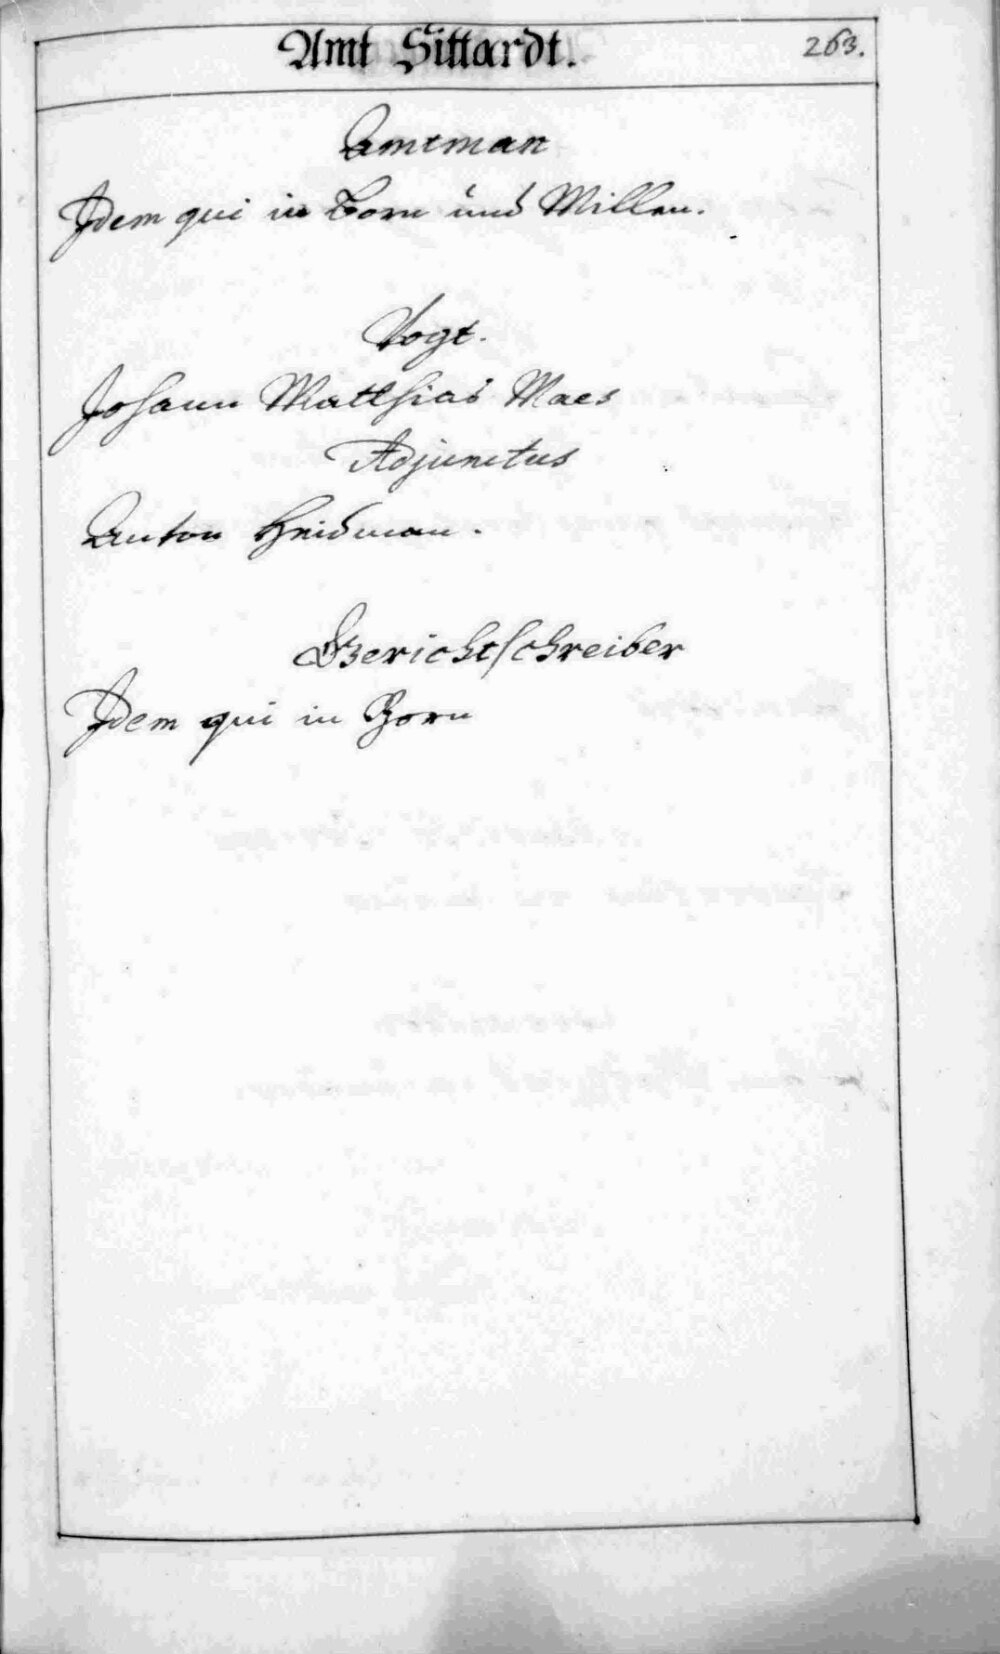 Amt Sittardt.
263.
Amtman
Idem qui in Born und Millen.
Vogt.
Johann Matthias Maes
Adjunctus
Anton Heidman.
Gerichtschreiber
Idem qui in Born